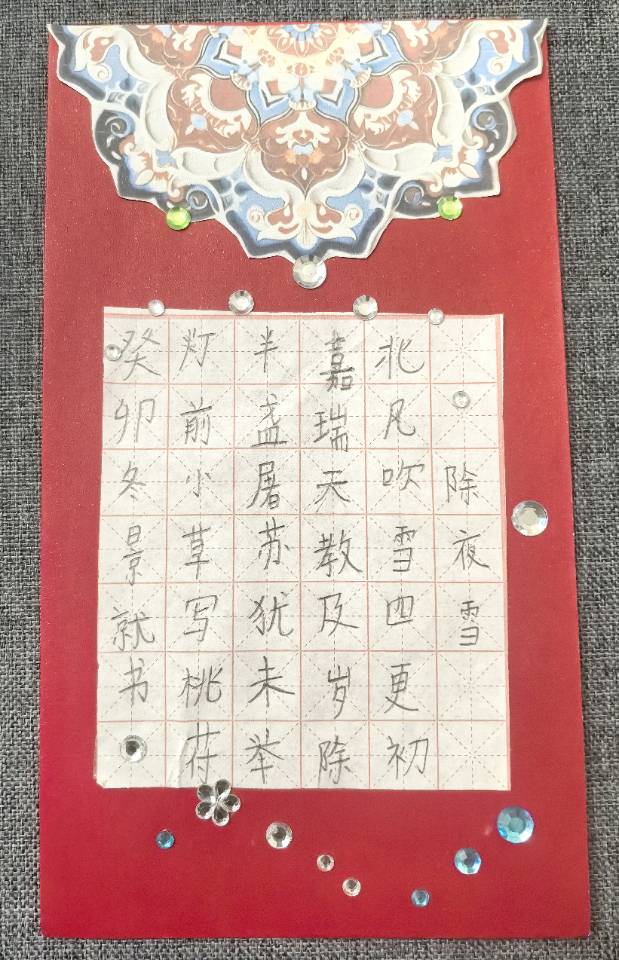 除夜雪
北风吹雪四更初
嘉瑞天教及岁除
半盏屠苏犹未举
灯前小草写桃符
癸卯冬景就书